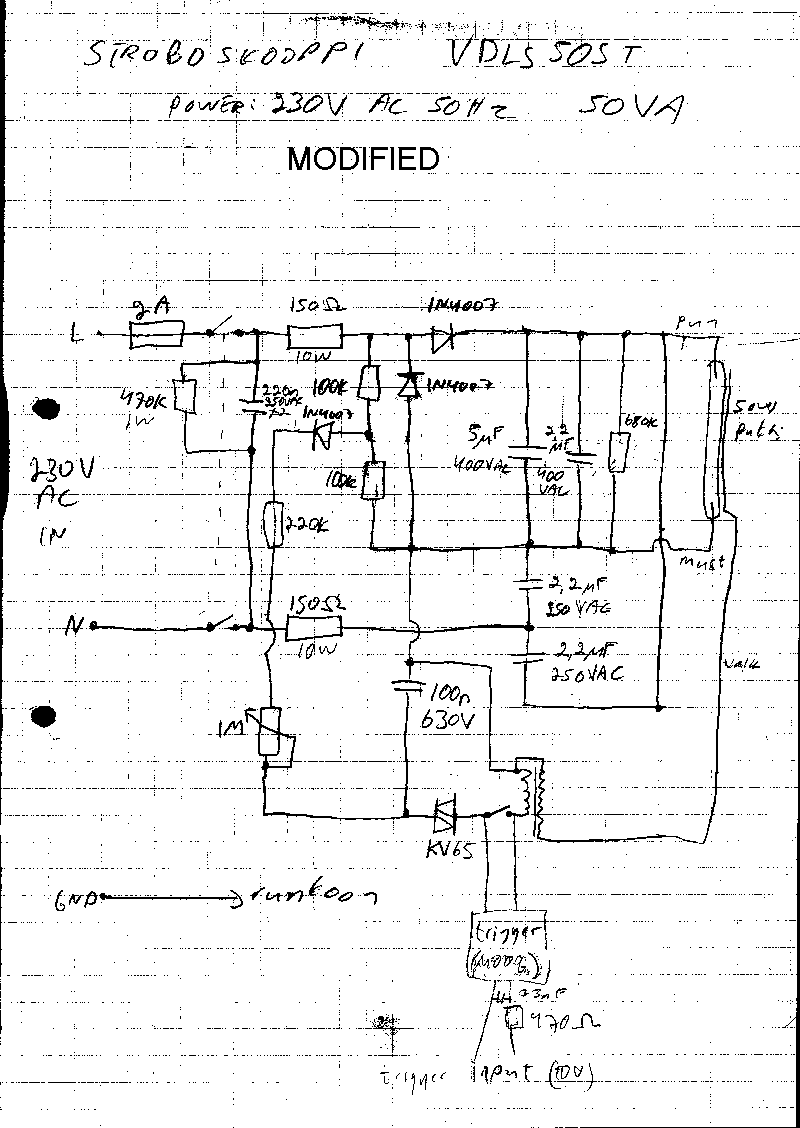 STROBOSKOOPPI VDLS 50ST
POWER: 230V AC 50Hz 50VA
MODIFIED
L
2A
150Ω
10W
1N4007
Pun
470K
1W
220n
250VAC
X2
100K
1N4007
1N4007
100K
220K
5µF
400VAC
2,2
µF
400
VAC
680K
50W
Putki
230V
AC
IN
must
2,2µF
250VAC
N
150Ω
10W
2,2µF
250VAC
valk
100n
630V
1M
KV65
GND
runkoon
trigger
470Ω
trigger input (10V)